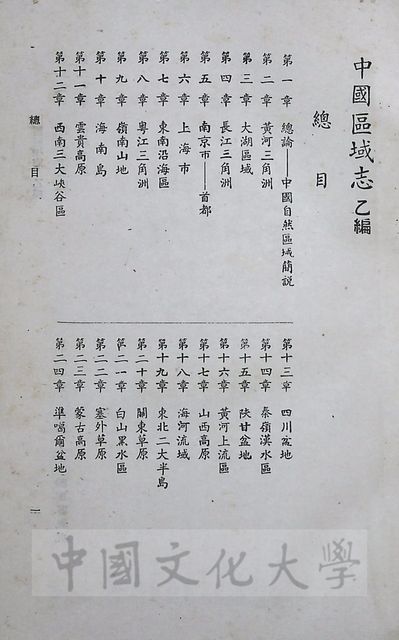 中國區域志乙編
總目
第一章 總論——中國自然區域簡說
第二章 黃河三角洲
第三章 大湖區域
第四章 長江三角洲
第五章 南京市——首都
第六章 上海市
第七章 東南沿海區
第八章 粵江三角洲
第九章 嶺南山地
第十章 海南島
第十一章 雲貴高原
第十二章 西南三大峽谷區
第十三章 四川盆地
第十四章 秦嶺漢水區
第十五章 陝甘盆地
第十六章 黃河上流區
第十七章 山西高原
第十八章 海河流域
第十九章 東北二大半島
第二十章 關東草原
第二一章 白山黑水區
第二二章 塞外草原
第二三章 蒙古高原
第二四章 準噶爾盆地
總目
一
中國文化大學